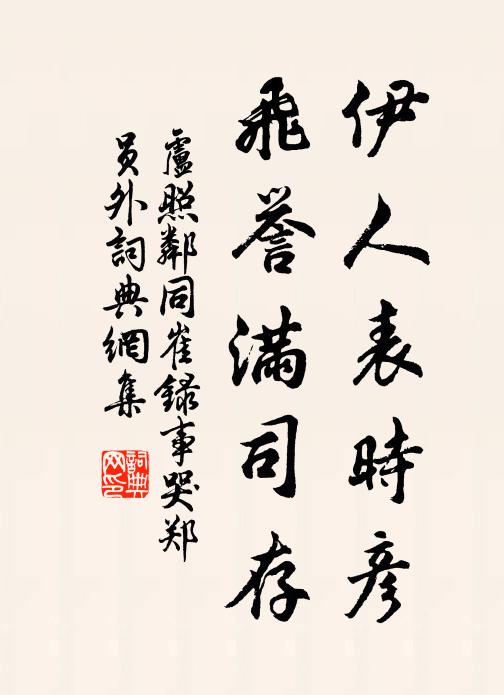 伊人表時彥
飛譽滿司存
盧照鄰同崔錄事哭郑
員外詞典網集
詞典网印